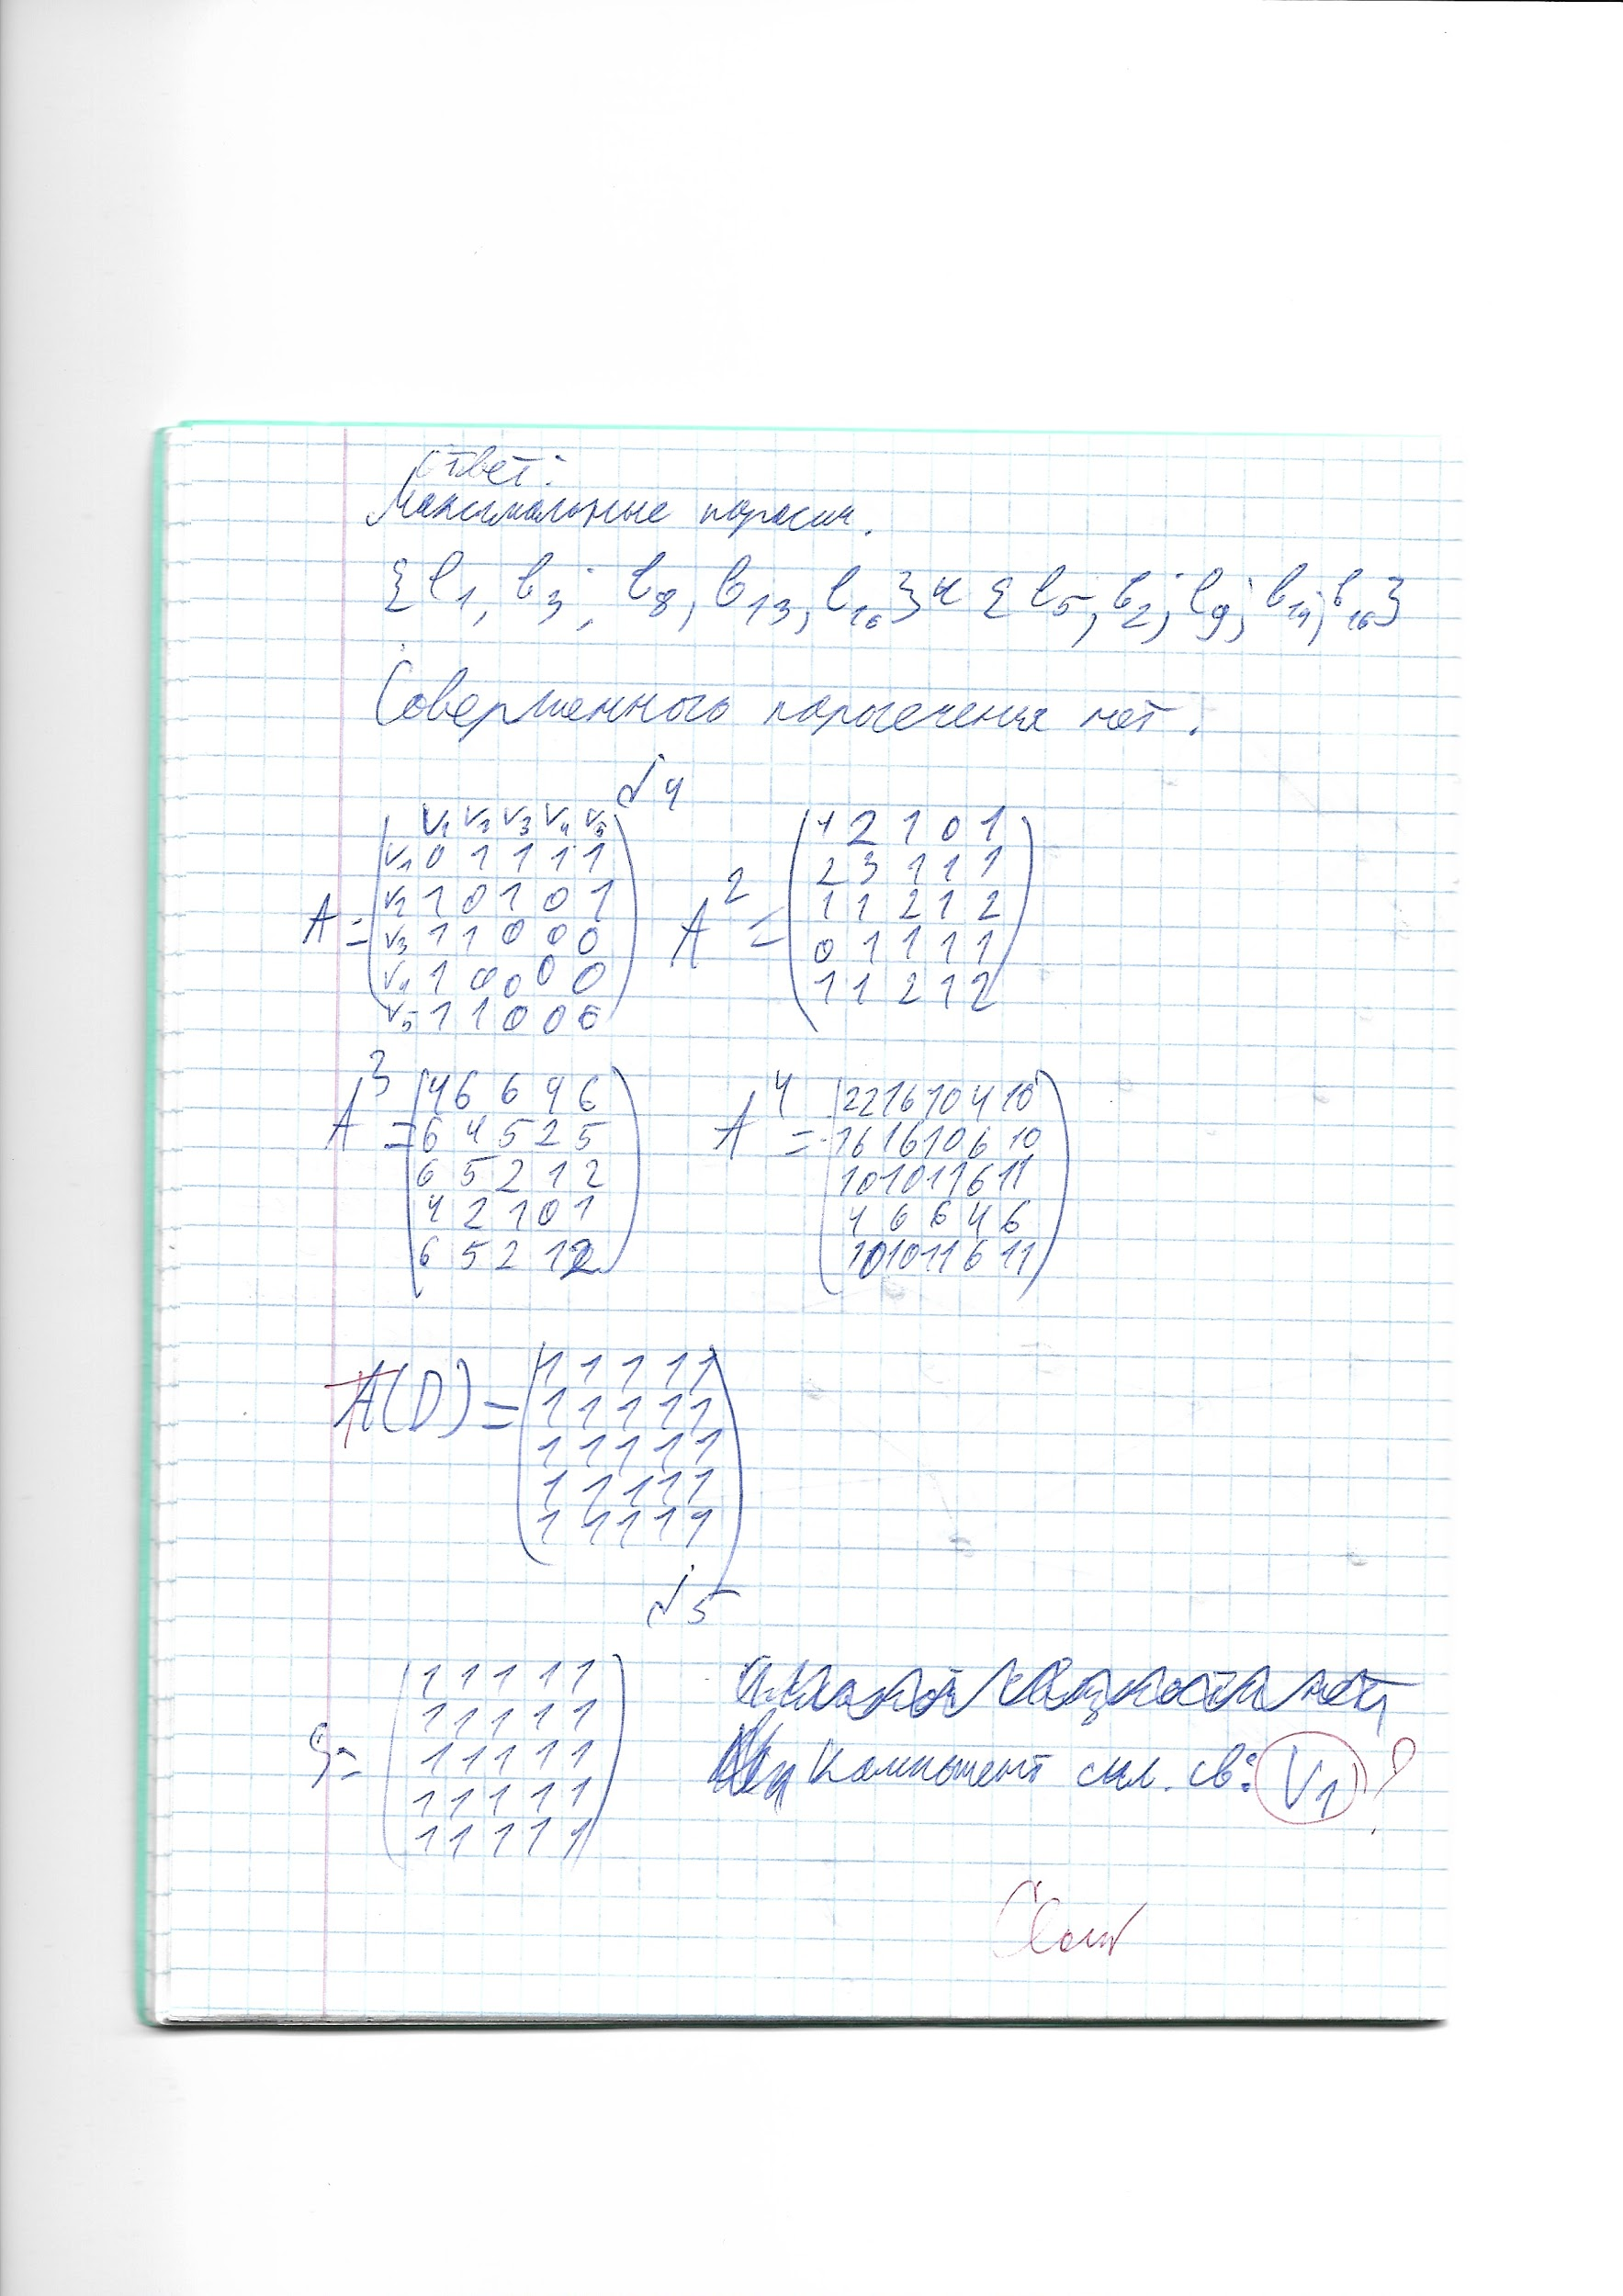 Ответ:
Максимальные парасич.
{b1, b3; b8, b13, b16} и {b5; b2; b9; b14; b16}
Совершенного парасечения нет.
№4
V1 V2 V3 V4 V5
V1 0 1 1 1 1
V2 1 0 1 0 1
A = V3 1 1 0 0 0
V4 1 0 0 0 0
V5 1 1 0 0 0
4 2 1 0 1
2 3 1 1 1
A² = 1 1 2 1 2
0 1 1 1 1
1 1 2 1 2
4 6 6 4 6
A³ = 6 4 5 2 5
6 5 2 1 2
4 2 1 0 1
6 5 2 1 2
22 16 10 4 10
A⁴ = 16 16 10 6 10
10 10 11 6 11
4 6 6 4 6
10 10 11 6 11
1 1 1 1 1
A(D) = 1 1 1 1 1
1 1 1 1 1
1 1 1 1 1
1 1 1 1 1
№5
1 1 1 1 1
1 1 1 1 1
S = 1 1 1 1 1
1 1 1 1 1
1 1 1 1 1
Компонент сил. св: V1 ?